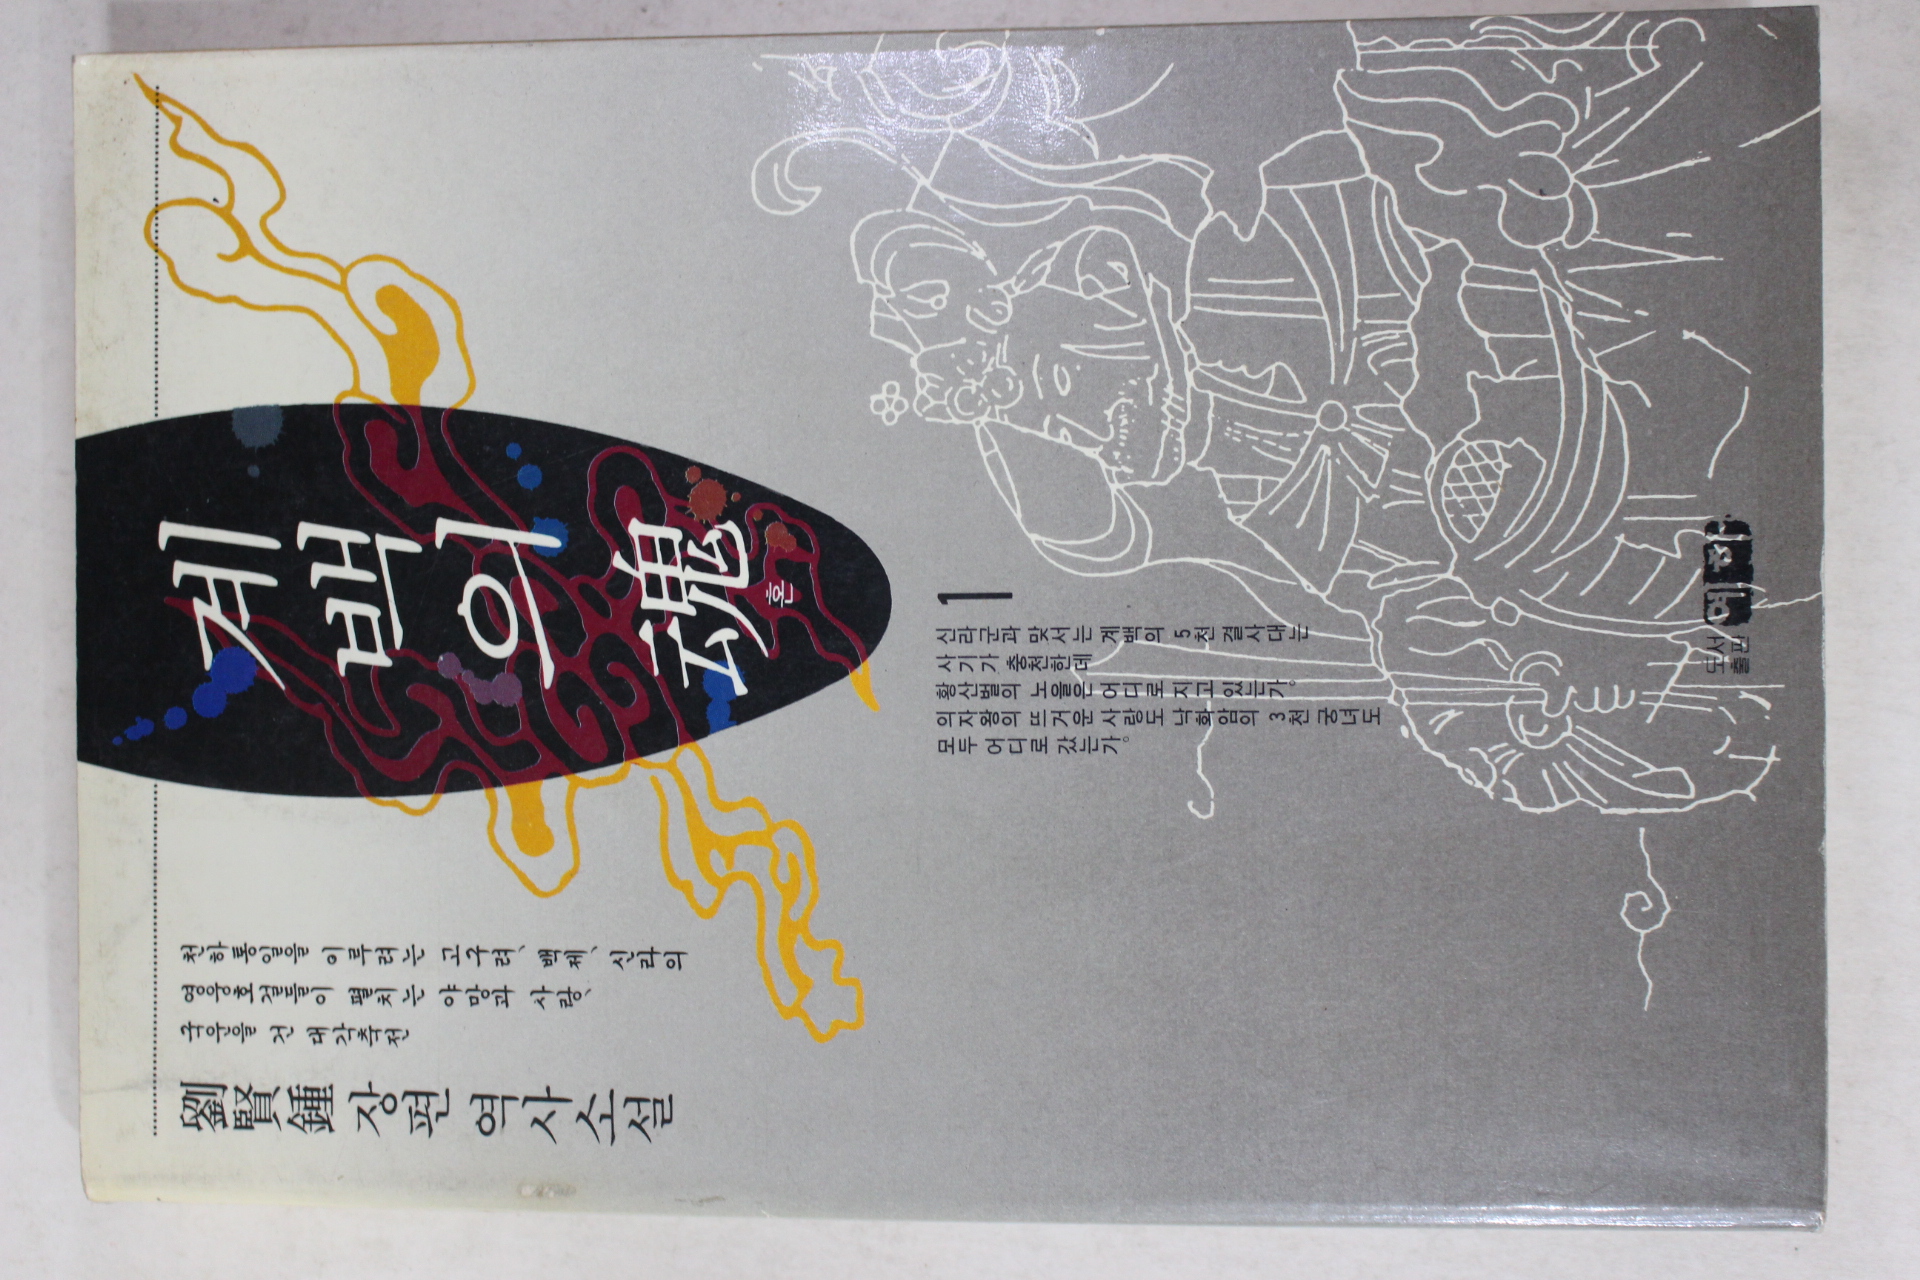 계백의 魂
혼
劉賢鍾 장편 역사소설
천하통일을 이루려는 고구려、백제、신라의
영웅호걸들이 펼치는 야망과 사랑、
국운을 건 대각축전
1
신라군과 맞서는 계백의 5천결사대는
사기가 충천한데
황산벌의 노을은 어디로 지고 있는가。
의자왕의 뜨거운 사랑도 낙화암의 3천 궁녀도
모두 어디로 갔는가。
도서출판 예하